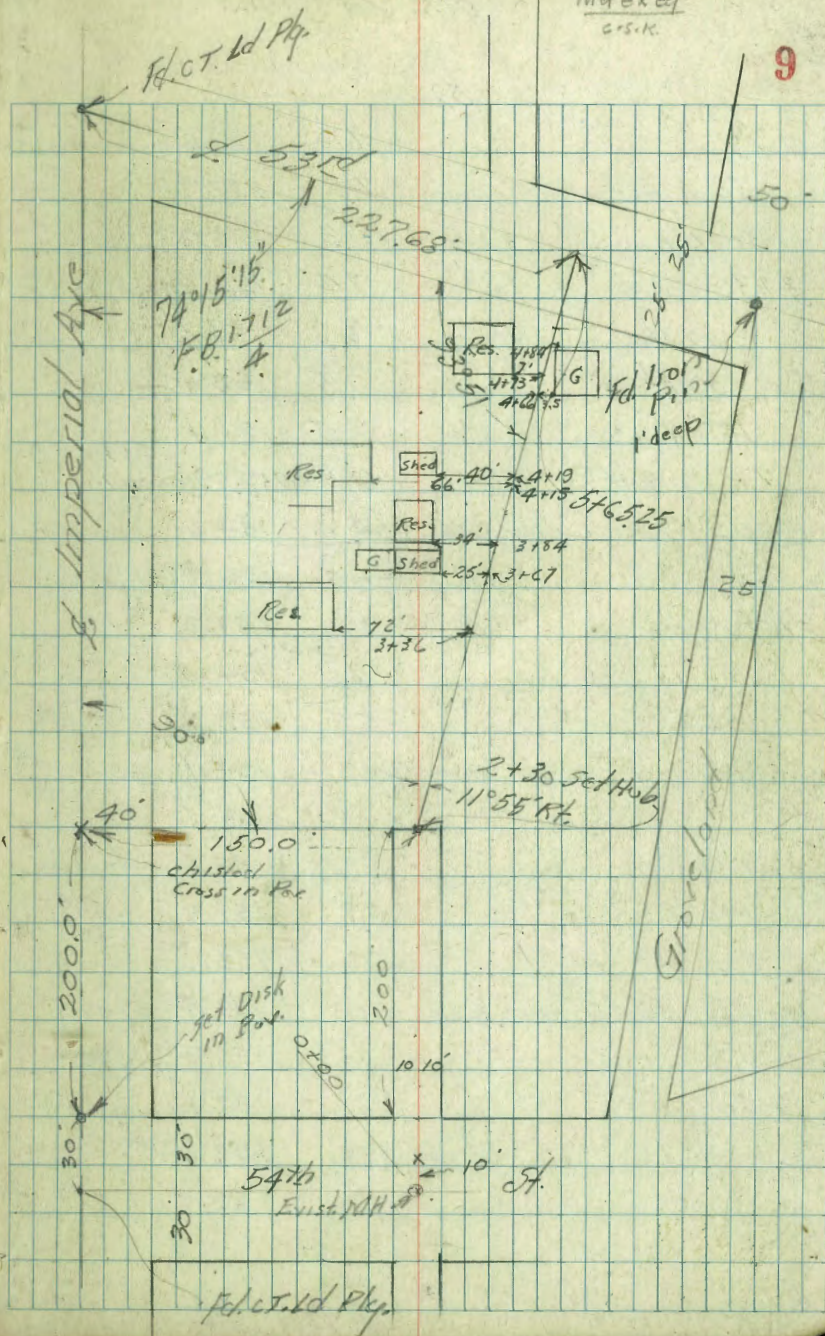 Indexed
C.S.K.
9
Fd. C.T. Ld Plg.
℄ 53rd
227.68'
50'
25'
25'
74°15'15"
F.B. 1712
4
℄ Imperial Ave
Res.
4+84
7'
4+73
4+66 7.5
G
Fd. Iron
Pin
1' deep
Res
Shed
40'
4+19
66'
4+15
5+65.25
Res.
34'
3+84
G
Shed
25'
3+67
Res.
72'
3+36
25'
90°
2+30 Set Hub
11°55' Rt.
40'
150.0'
chisled
Cross in Pav.
Groveland
200.0'
200
Set Disk
in Pav.
0+00
10 10'
30'
30'
54th
10'
St.
Exist. MH
30
Fd. C.T. Ld Plg.